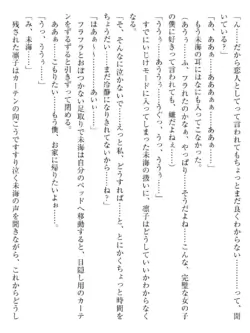 「ん……だから恋人としてもっとまだ良くわからない……って、聞
「あ、ぁぁぁ……」
もう未海の耳にはなにも入っていなかった。
「ううぅ……フラれたのかなぁ、やっぱり……そうだよね……こんな、完璧な女の子
の僕に好きって言われても、嫌だよねぇ……」
「あうぅ……ううぅぅ……うぐっ、うっ、ううぅ……」
すでにいじけモードに入ってしまった未海の扱いに、凛子はどうしていいかわからなく
「そ、そんなに泣かないで……えっと私、どうすれば……と、とにかくちょっと時間を
ちょうだい……まだ冷静になりきれてないから……ね？」
「はぁぁ～……あいい……」
フラフラとおぼつかない足取りで未海は自分のベッドへ移動すると、目隠し用のカーテ
ンをするするっと引きずって閉める。
「ああ～……こもりたい……もう僕、お家に帰りたいよぉ……」
「み、未海……」
残された凛子はカーテンの向こうですすり泣く未海の声を聞きながら、これからどうし